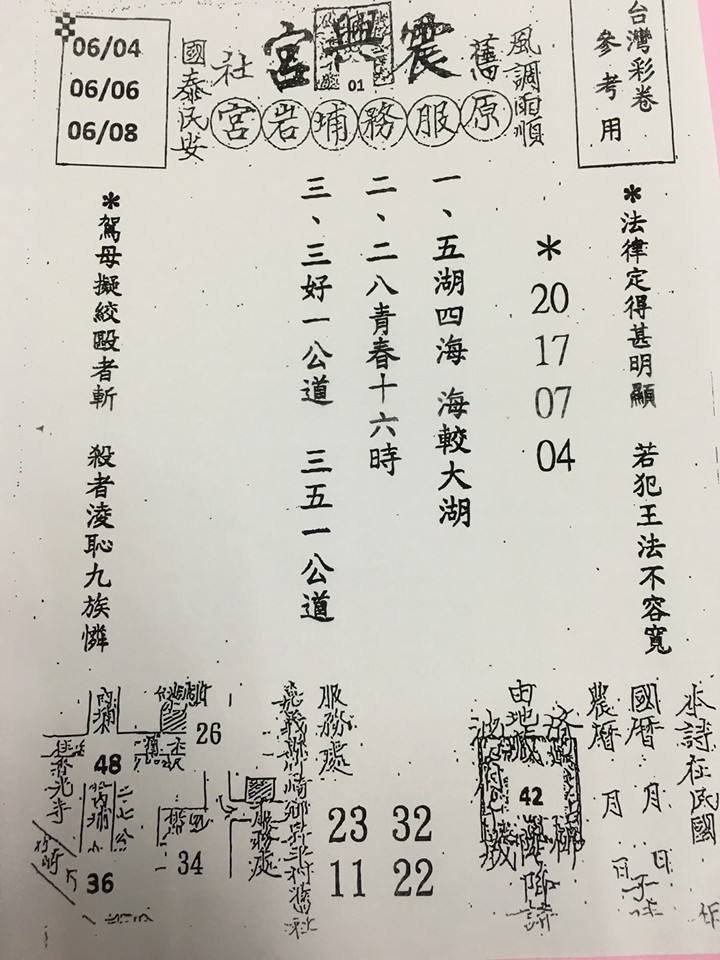 台灣彩卷
參考用
風調雨順
舊
震興宮
01
社
國泰民安
原服務埔岩宮
06/04
06/06
06/08
＊法律定得甚明顯 若犯王法不容寬
＊
20
17
07
04
一、五湖四海 海較大湖
二、二八青春十六時
三、三好一公道 三五一公道
＊駕母擬絞毆者斬 殺者淩恥九族憐
本詩在民國
國曆 月 日
農曆 月 日
42
服務處
23 32
11 22
服務處
26
內埔
48
34
36